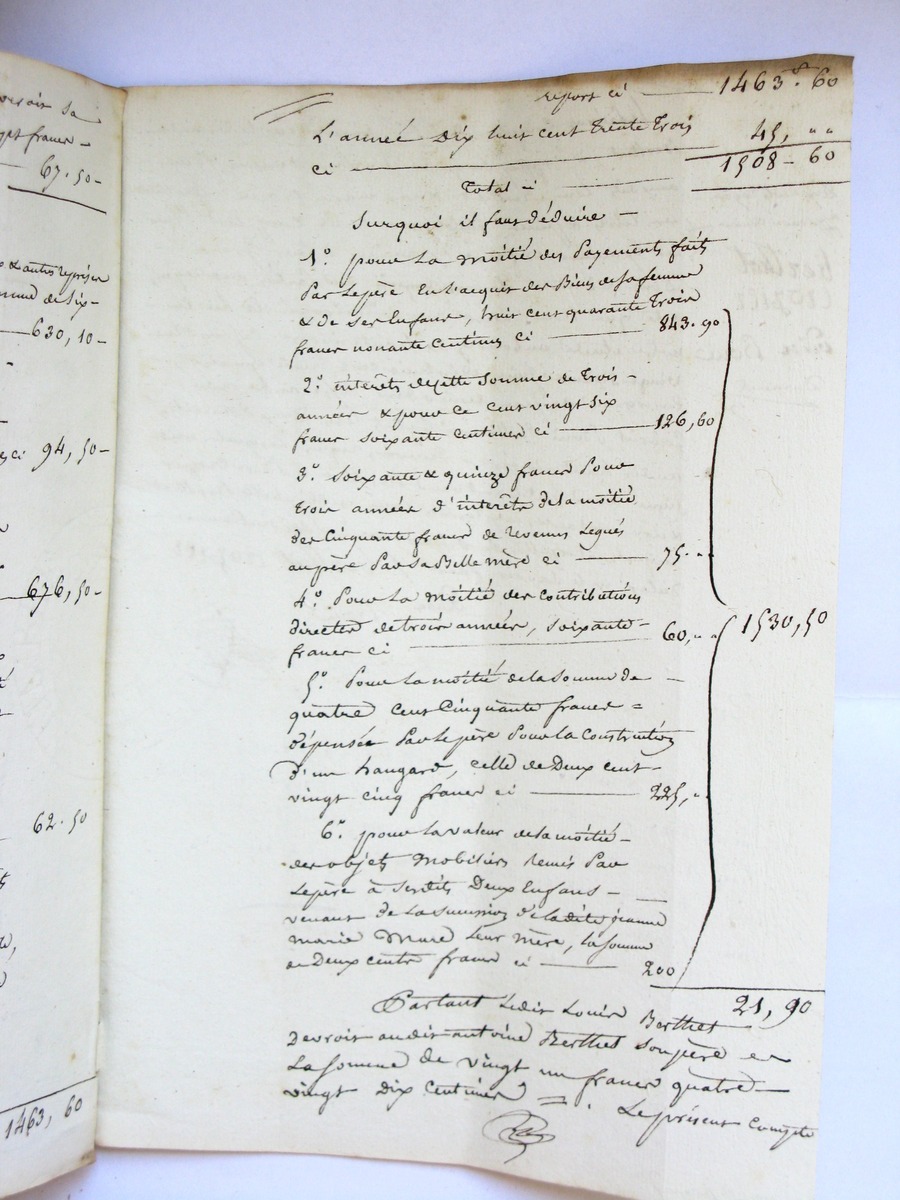 oursoit sa
ept francs –
67.50 –
& autres reprises
somme de six –
630, 10 –
ci 94, 50 –
676, 50 –
62.50
1463, 60
report ci — 1463.f 60
L'année Dix huit cent trente trois
ci — 45, " "
Total ci — 1508 – 60
Surquoi il faut déduire –
1.° pour La moitié des Payements faits
Par Lepère En L'acquit des Biens de sa femme
& de ses Enfans, huit cent quarante Trois
francs nonante Centimes ci — 843.90
2.° interêts de cette Somme de trois –
années & pour ce cent vingt Six
francs soixante centimes ci — 126,60
3.° Soixante & quinze francs Pour
trois années d'interêts de la moitié
des Cinquante francs de revenus Legués
au père Par sa Belle mère ci — 75. "
4.° Pour La moitié des Contributions
directes de trois années, soixante –
francs ci — 60, " "
1530,50
5.° Pour La moitié de la Somme de –
quatre cent Cinquante francs =
dépensée Par Lepère Pour La Construction
d'un hangard, celle de Deux cent –
vingt cinq francs ci — 225, "
6.° pour La valeur de la moitié –
des objets Mobiliers remis Par
Lepère à Sesdits Deux Enfans –
venant de La succession de ladite jeanne
marie Mure Leur mère, La somme
de Deux cents francs ci — 200
21, 90
Partant Ledit Louis Berthet
Devroit audit antoine Berthet son père
La Somme de vingt un francs quatre –
vingt Dix Centimes = . Le présent Compte